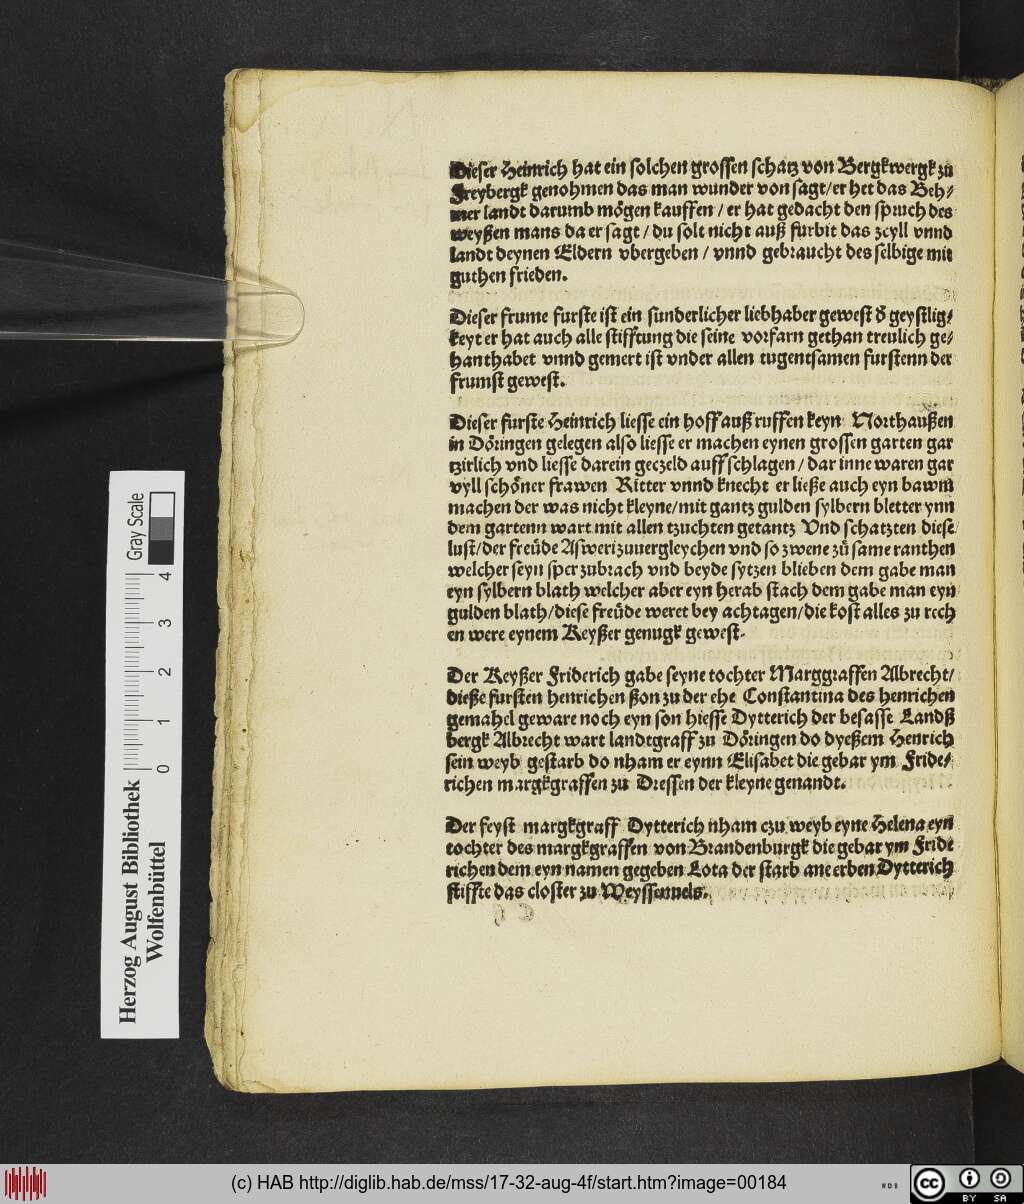 Dieser Heinrich hat ein solchen grossen schatz von Bergkwergk zu
Freybergk genohmen das man wunder von sagt/er het das Beh⸗
mer landt darumb mögen kauffen / er hat gedacht den spruch des
weyßen mans da er sagt / du solt nicht auß furbit das zcyll vnnd
landt deynen Eldern vbergeben / vnnd gebraucht des selbige mit
guthen frieden.
Dieser frume furste ist ein sunderlicher liebhaber gewest d̕ geystlig⸗
keyt er hat auch alle stifftung die seine vorfarn gethan treulich ge⸗
hanthabet vnnd gemert ist vnder allen tugentsamen furstenn der
frumst gewest.
Dieser furste Heinrich liesse ein hoff auß ruffen keyn Northaußen
in Döringen gelegen also liesse er machen eynen grossen garten gar
tzirlich vnd liesse darein geczeld auff schlagen / dar inne waren gar
vyll schöner frawen Ritter vnnd knecht er ließe auch eyn bawm
machen der was nicht kleyne/mit gantz gulden sylbern bletter ynn
dem gartenn wart mit allen tzuchten getantz Vnd schatzten diese
lust/der freüde Asweri zuuergleychen vnd so zwene zů same ranthen
welcher seyn sper zubrach vnd beyde sytzen blieben dem gabe man
eyn sylbern blath welcher aber eyn herab stach dem gabe man eyn
gulden blath/diese freüde weret bey achtagen/die kost alles zu rech
en were eynem Keyßer genugk gewest.
Der Keyßer Friderich gabe seyne tochter Marggraffen Albrecht/
dieße fursten henrichen ßon zu der ehe Constantina des henrichen
gemahel geware noch eyn son hiesse Dytterich der besasse Landß
bergk Albrecht wart landtgraff zu Döringen do dyeßem Henrich
sein weyb gestarb do nham er eynn Elisabet die gebar ym Fride⸗
richen margkgraffen zu Dressen der kleyne genandt.
Der feyst margkgraff Dytterich nham czu weyb eyne Helena eyn
tochter des margkgraffen von Brandenburgk die gebar ym Fride
richen dem eyn namen gegeben Lota der starb ane erben Dytterich
stiffte das closter zu Weyssennels.
Herzog August Bibliothek
Wolfenbüttel
Gray Scale
0 1 2 3 4
(c) HAB http://diglib.hab.de/mss/17-32-aug-4f/start.htm?image=00184
WDB
cc BY SA